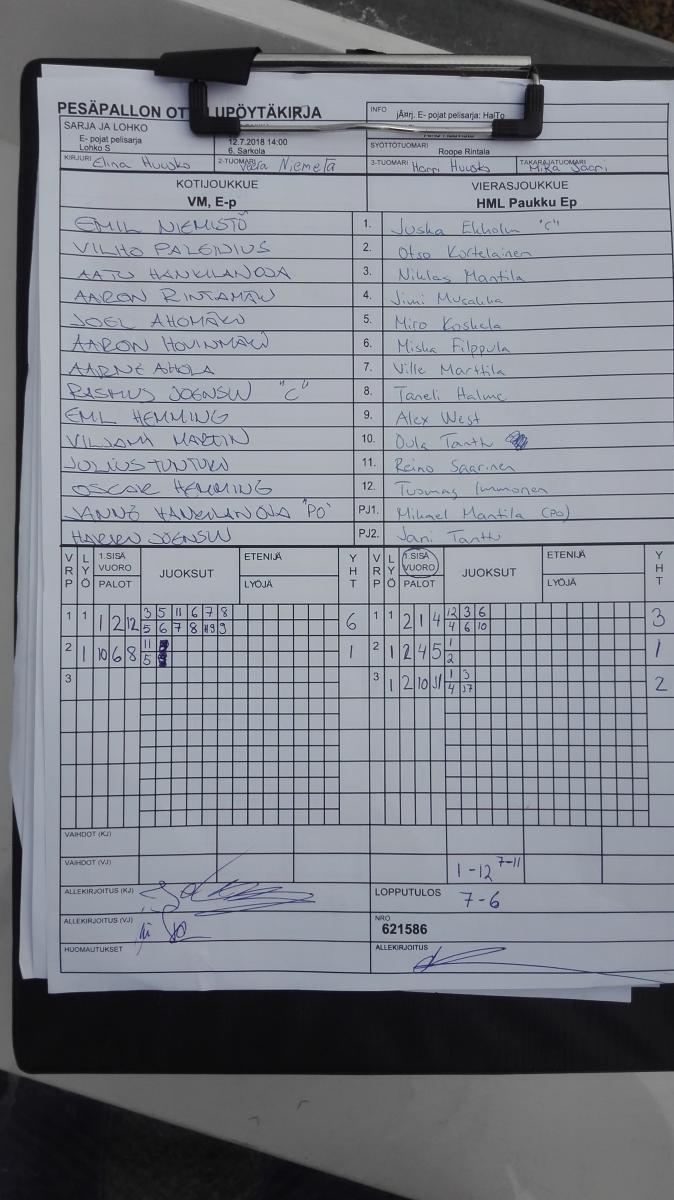 PESÄPALLON OTTELUPÖYTÄKIRJA
INFO jÄxrj. E- pojat pelisarja: HalTo
SARJA JA LOHKO
E- pojat pelisarja
Lohko S
12.7.2018 14:00
6. Sarkola
SYÖTTÖTUOMARI
Roope Rintala
KIRJURI Elina Huusko
2-TUOMARI Veera Niemelä
3-TUOMARI Harri Huusko
TAKARAJATUOMARI Mika Saari
KOTIJOUKKUE VIERASJOUKKUE
VM, E-p HML Paukku Ep
EMIL NIEMISTÖ 1. Juska Ekholm "C"
VILHO PALENIUS 2. Otso Kortelainen
AATU HANKILANOJA 3. Niklas Mantila
AARON RINTAMÄKI 4. Jimi Musakka
JOEL AHOMÄKI 5. Miro Koskela
AARON HOVINMÄKI 6. Miska Filppula
AARNE AHOLA 7. Ville Marttila
RASMUS JOENSUU "C" 8. Taneli Halme
EMIL HEMMING 9. Alex West
VILJAMI MARTIN 10. Oula Tanttu
JULIUS TUNTURI 11. Reino Saarinen
OSCAR HEMMING 12. Tuomas Immonen
JANNE HANKILANOJA "PO" PJ1. Mikael Mantila (PO)
HARRI JOENSUU PJ2. Jani Tanttu
VRP LYÖ 1.SISÄ VUORO PALOT JUOKSUT ETENIJÄ LYÖJÄ YHT VRP LYÖ 1.SISÄ VUORO PALOT JUOKSUT ETENIJÄ LYÖJÄ YHT
1 1 1 2 12 3 5 11 6 7 8 6 1 1 2 1 4 12 3 6 3
5 6 7 8 9 4 6 10
2 1 10 6 8 11 1 2 1 2 4 5 1 1
5 2
3 3 1 2 10 11 1 3 2
4
VAIHDOT (KJ)
VAIHDOT (VJ) 1-12 7-11
ALLEKIRJOITUS (KJ) LOPPUTULOS 7-6
ALLEKIRJOITUS (VJ) NRO
621586
HUOMAUTUKSET ALLEKIRJOITUS